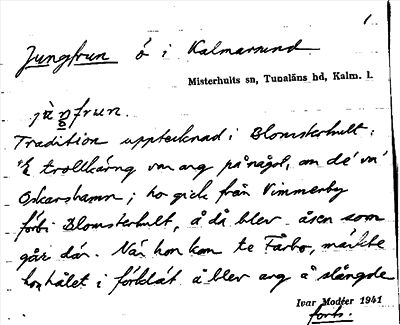 1
Jungfrun ö i Kalmarsund
Misterhults sn, Tunaläns hd, Kalm. l.
Tradition upptecknad i Blomsterhult:
"E trollkärng var arg på någôt, om dé va'
Oskarshamn; ho gick från Vimmerby
förbi Blomsterhult, å då blev åsen som
går där. När hon kom te Fårbo, märkte
hon hålet i förklät å blev arg å slängde
Ivar Modéer 1941
forts.